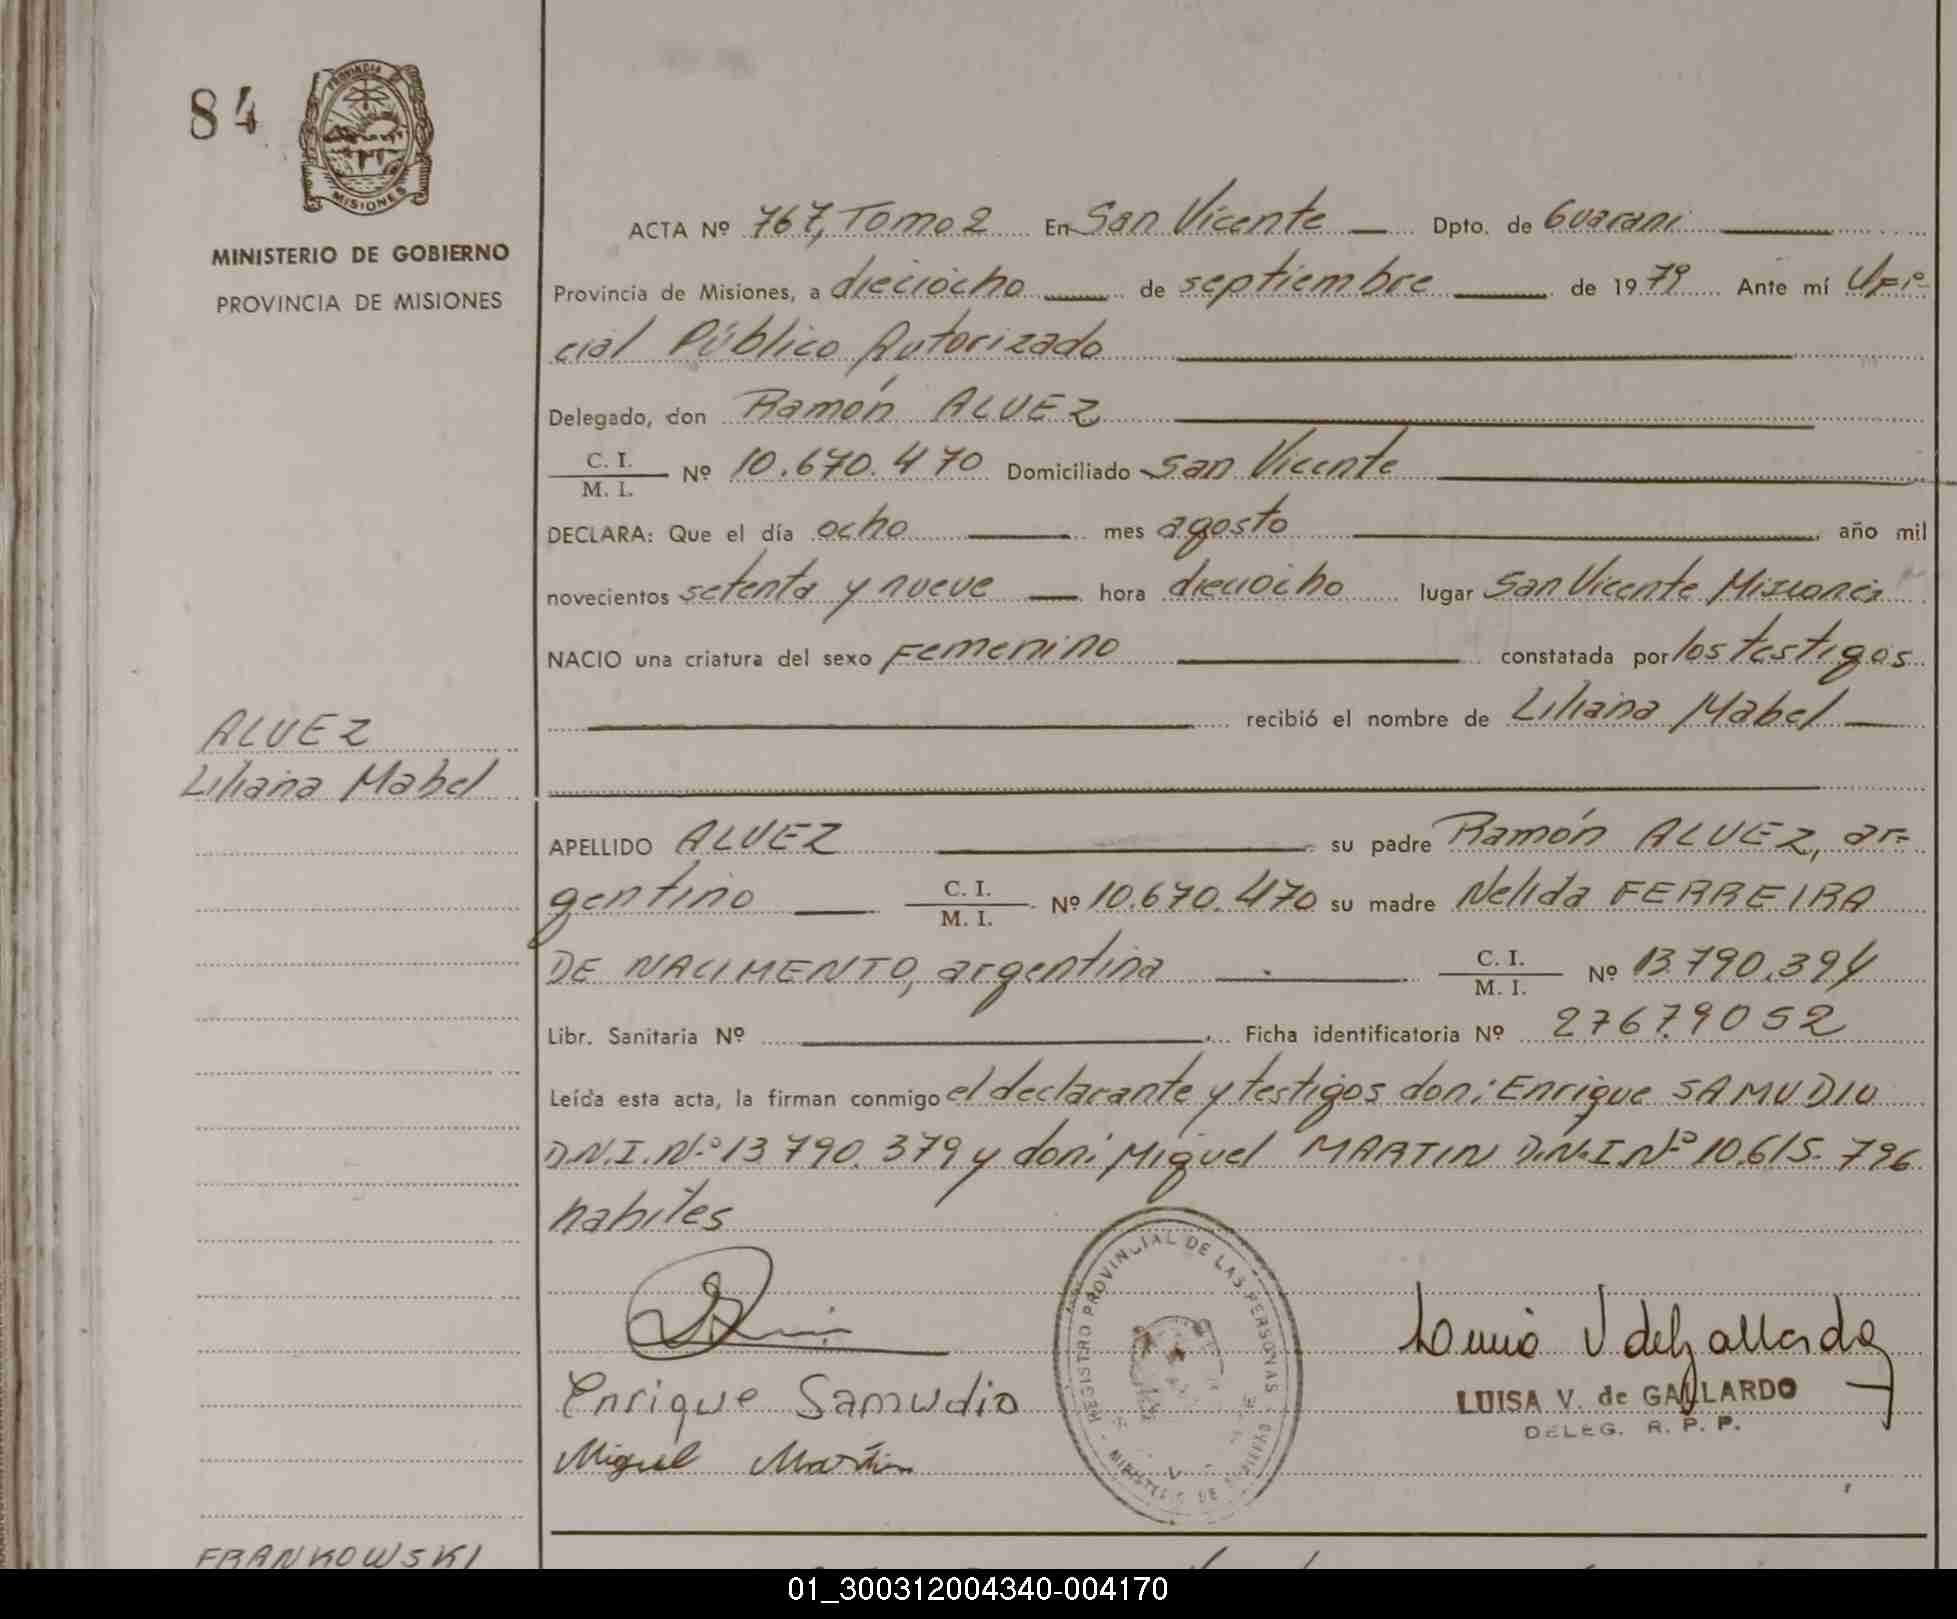 84
PROVINCIA DE
MISIONES
MINISTERIO DE GOBIERNO
PROVINCIA DE MISIONES
ACTA Nº 767, Tomo 2 En San Vicente Dpto. de Guarani
Provincia de Misiones, a dieciocho de septiembre de 1979 Ante mí Ofi=
cial Público Autorizado
Delegado, don Ramón ALVEZ
C. I.
M. I. Nº 10.670.470 Domiciliado San Vicente
DECLARA: Que el día ocho mes agosto año mil
novecientos setenta y nueve hora dieciocho lugar San Vicente Misiones
NACIO una criatura del sexo Femenino constatada por los testigos
recibió el nombre de Liliana Mabel
ALVEZ
Liliana Mabel
APELLIDO ALVEZ su padre Ramón ALVEZ, ar=
gentino C. I. M. I. Nº 10.670.470 su madre Nelida FERREIRA
DE NACIMENTO, argentina C. I. M. I. Nº 13.790.394
Libr. Sanitaria Nº Ficha identificatoria Nº 27679052
Leída esta acta, la firman conmigo el declarante y testigos don: Enrique SAMUDIO
D.N.I.Nº 13.790.379 y don: Miguel MARTIN D.N.I.Nº 10.615.796
habiles
REGISTRO PROVINCIAL DE LAS PERSONAS
MINISTERIO DE
Enrique Samudio
Miguel Martin
Luisa V de Gallardo
LUISA V. de GALLARDO
DELEG. R. P. P.
FRANKOWSKI
01_300312004340-004170